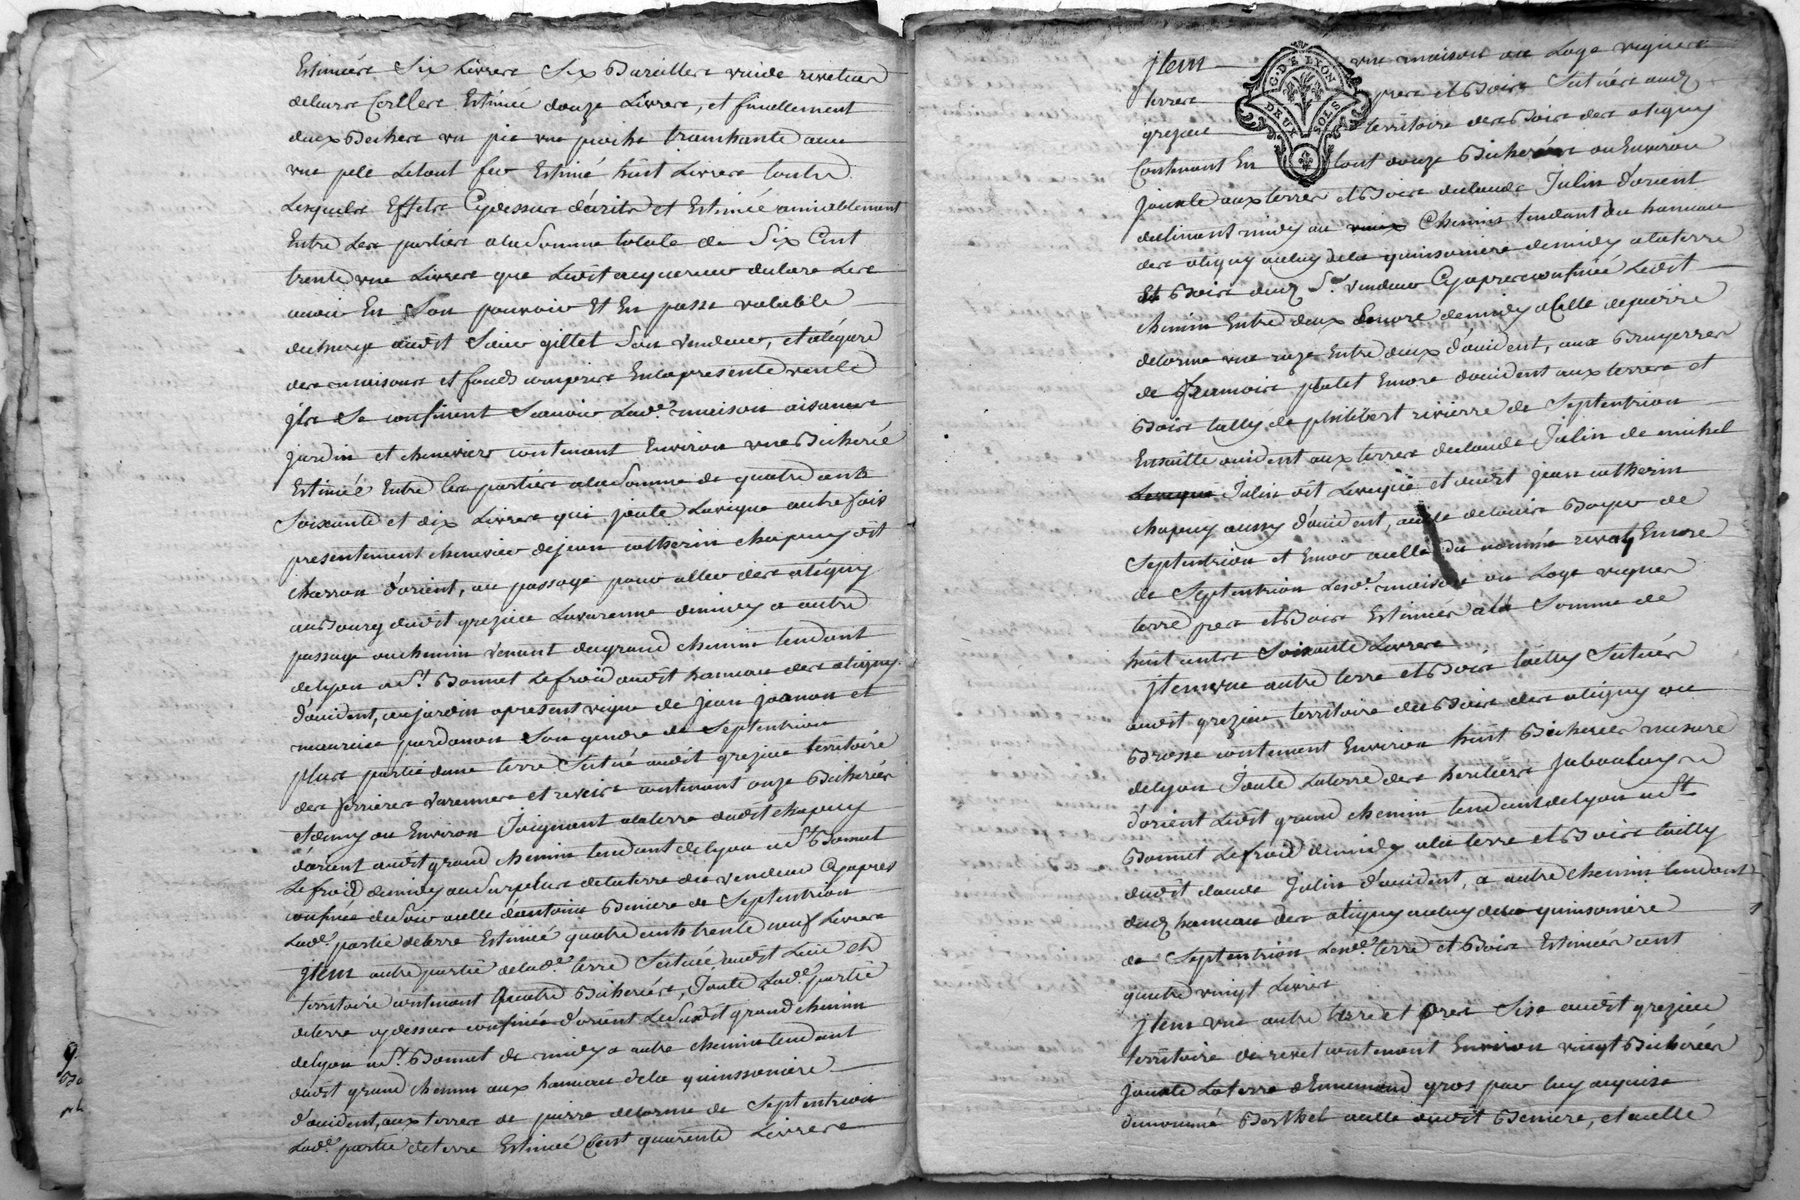 Estimées Six Livres Six Bareilles vuide revetues
de leurs Cercles Estimée douze Livres, et finallement
deux Bechers un pic une pioche tranchante avec
une pele Letout fer Estimé huit Livres toutes
Lesquelles Effets Cydessus décrits et Estimée amiablement
Entre Les parties a la Somme totale de Six Cent
trente une Livres que Ledit acquereur declare Les
avoir En Son pouvoir Et En passe valable
decharge audit Sieur gillet Son Vendeur, et alégard
des maisons et fonds compris En la presente vente
jls Se confinent Scavoir Lade. maison aisances
jardin et chenevier contenant Environ une Bicherée
Estimée Entre les parties a la Somme de quatre cents
Soixante et dix Livres qui joute Lavigne autre fois
presentement chenevier de jean catherin chapuy dit
charron d'orient, au passage pour aller des atigny
au Bourg dudit grezieu Lavarenne de midy a autre
passage ou chemin venant du grand chemin tendant
de Lyon a St. Bonnet Lefroid audit hameau des atigny
d'occident, au jardin apresent vigne de jean joanon et
maurice pardonon Son gendre de Septentrion
plus partie dune terre Situé audit grezieu territoire
des ferrieres varennes et revoire contenant onze Bicherées
et demy ou Environ Joignant alaterre dudit chapuy
d'orient audit grand chemin tendant de Lyon a St. Bonnet
Lefroid de midy au Surplus de laterre du vendeur Cyapres
confinée du Soir a celle d'antoine Beniere de Septentrion
Lade. partie deterre Estimée quatre cents trente neuf Livres
jtem autre partie de lade. terre Située audit Lieu et
territoire contenant quatre Bicherées, Joute Lade. partie
deterre cydessus confinée d'orient Le Susdit grand chemin
de Lyon a St. Bonnet de midy a autre chemin tendant
dudit grand chemin aux hameau dela quinssoniere
d'occident, aux terres de pierre delorme de Septentrion
Lade. partie deterre Estimée Cent quarente Livres
jtem une maison ou Loge vignes
G. DE LYON
DEUX SOLS
terres pres et Bois Situées audt
grezieu territoire des Bois des atigny
Contenant En tout onze Bicherées ou Environ
Joute aux terres et Bois de claude Julin d'orient
declinant midy au vieux Chemin tendant du hameau
des atigny a celuy dela quinsoniere de midy a laterre
Et Bois dudt Sr. vendeur Cyapres confinée Ledit
chemin Entre deux Encore de midy a Celle de pierre
delorme une raze Entre deux d'occident, aux Bruyerres
de françois platet Encore d'occident aux terres et
Bois tailly de philibert rivierre de Septentrion
Ensuitte occident aux terres declaude Julin de michel
Julin dit Levigne et dudit jean catherin
chapuy aussy d'occident, a celle de Bayer de
Septentrion et Encore a celle du nommé rivat Encore
de Septentrion Lesde. maison ou Loge vignes
terre pres et Bois Estimées a la Somme de
huit cents Soixante Livres
jtem une autre terre et Bois tailly Situées
audit grezieu territoire des Bois des atigny ou
Brosse contenant Environ huit Bicherées mesure
de Lyon Joute Laterre des heritiers
d'orient Ledit grand chemin tendant de Lyon a St.
Bonnet Lefroid de midy a la terre et Bois tailly
dudit claude Julin d'occident, a autre chemin tendant
dudt hameau des atigny a celuy dela quinsoniere
de Septentrion Lesde. terre et Bois Estimées cent
quatre vingt Livres
jtem une autre terre et pres Sise audit grezieu
territoire de revet contenant Environ vingt Bicherées
Joute Laterre d'Ennemond gros par luy acquise
du nommé Berthet a celle dudit Beniere, et a celle